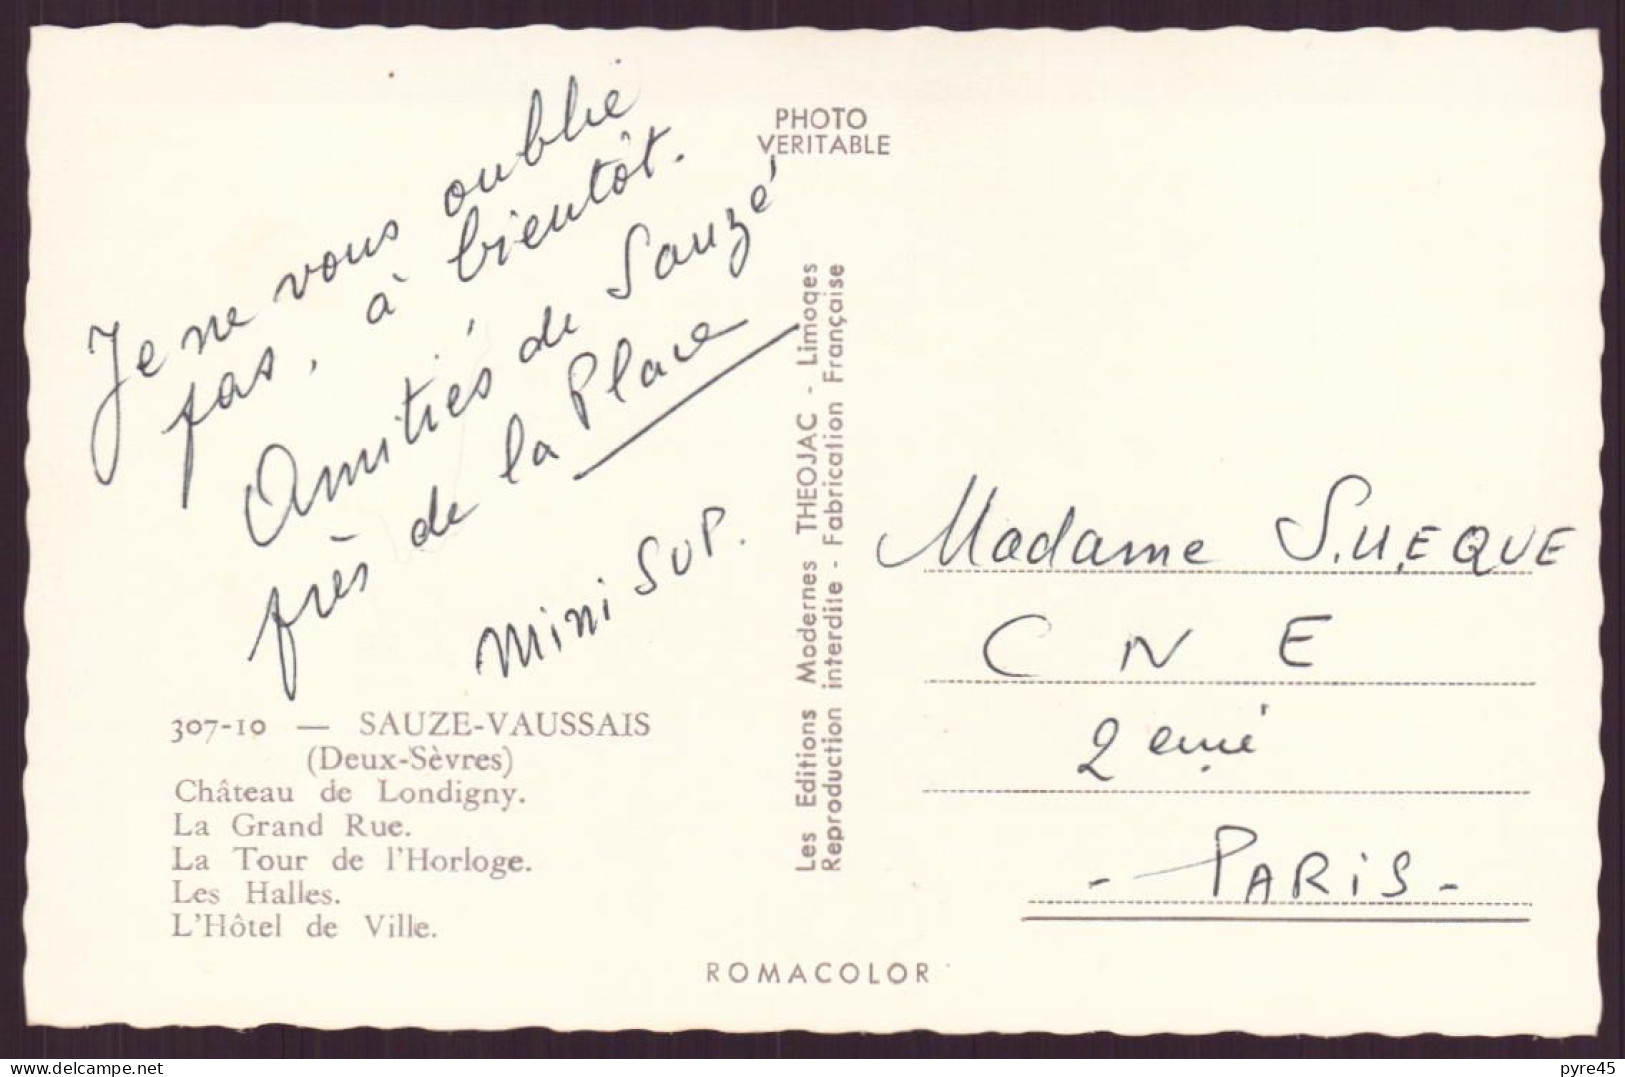 Je ne vous oublie
pas, à bientôt.
Amitiés de Sauzé
près de la Place
Mini SUP.
307-10 — SAUZE-VAUSSAIS
(Deux-Sèvres)
Château de Londigny.
La Grand Rue.
La Tour de l'Horloge.
Les Halles.
L'Hôtel de Ville.
PHOTO
VERITABLE
Les Editions Modernes THEOJAC - Limoges
Reproduction interdite - Fabrication Française
ROMACOLOR
Madame
C N E
2 emé
- PARiS -
delcampe.net
pyre45